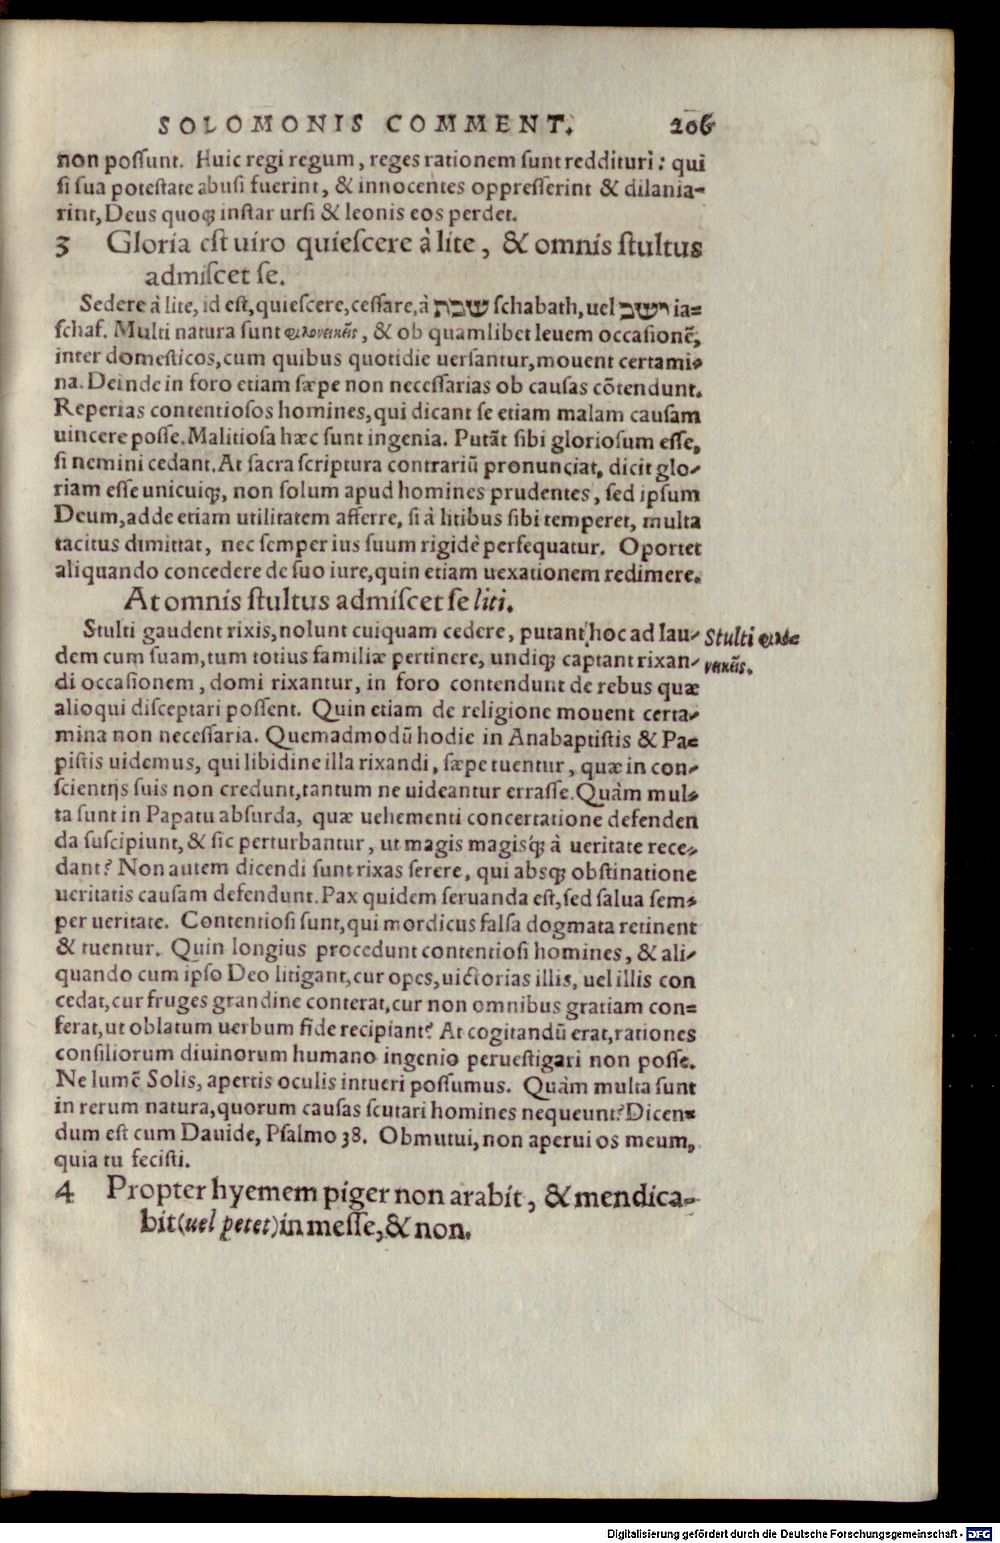 SOLOMONIS COMMENT. 206
non possunt. Huic regi regum, reges rationem sunt reddituri: qui
si sua potestate abusi fuerint, & innocentes oppresserint & dilania-
rint, Deus quoq; instar ursi & leonis eos perdet.
3 Gloria est uiro quiescere à lite, & omnis stultus
admiscet se.
Sedere à lite, id est, quiescere, cessare, à שבת schabath, uel ישב ia=
schaf. Multi natura sunt φιλονεικεῖς, & ob quamlibet leuem occasionē,
inter domesticos, cum quibus quotidie uersantur, mouent certami-
na. Deinde in foro etiam sæpe non necessarias ob causas cōtendunt.
Reperias contentiosos homines, qui dicant se etiam malam causam
uincere posse. Malitiosa hæc sunt ingenia. Putāt sibi gloriosum esse,
si nemini cedant. At sacra scriptura contrariū pronunciat, dicit glo-
riam esse unicuiq;, non solum apud homines prudentes, sed ipsum
Deum, adde etiam utilitatem afferre, si à litibus sibi temperet, multa
tacitus dimittat, nec semper ius suum rigidè persequatur. Oportet
aliquando concedere de suo iure, quin etiam uexationem redimere.
At omnis stultus admiscet se liti.
Stulti gaudent rixis, nolunt cuiquam cedere, putant hoc ad lau-
dem cum suam, tum totius familiæ pertinere, undiq; captant rixan-
di occasionem, domi rixantur, in foro contendunt de rebus quæ
alioqui disceptari possent. Quin etiam de religione mouent certa-
mina non necessaria. Quemadmodū hodie in Anabaptistis & Pa=
pistis uidemus, qui libidine illa rixandi, sæpe tuentur, quæ in con-
scientijs suis non credunt, tantum ne uideantur errasse. Quàm mul-
ta sunt in Papatu absurda, quæ uehementi concertatione defenden
da suscipiunt, & sic perturbantur, ut magis magisq́; à ueritate rece-
dant? Non autem dicendi sunt rixas serere, qui absq; obstinatione
ueritatis causam defendunt. Pax quidem seruanda est, sed salua sem-
per ueritate. Contentiosi sunt, qui mordicus falsa dogmata retinent
& tuentur. Quin longius procedunt contentiosi homines, & ali-
quando cum ipso Deo litigant, cur opes, uictorias illis, uel illis con
cedat, cur fruges grandine conterat, cur non omnibus gratiam con=
ferat, ut oblatum uerbum fide recipiant? At cogitandū erat, rationes
consiliorum diuinorum humano ingenio peruestigari non posse.
Ne lumē Solis, apertis oculis intueri possumus. Quàm multa sunt
in rerum natura, quorum causas scutari homines nequeunt? Dicen=
dum est cum Dauide, Psalmo 38. Obmutui, non aperui os meum,
quia tu fecisti.
4 Propter hyemem piger non arabit, & mendica-
bit (uel petet) in messe, & non.
Stulti φιλο=
νεικεῖς.
Digitalisierung gefördert durch die Deutsche Forschungsgemeinschaft - DFG